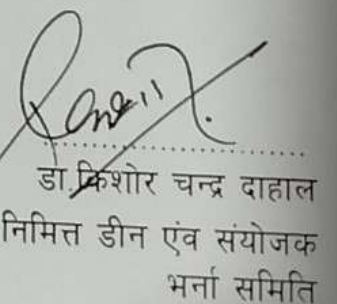 डा.किशोर चन्द्र दाहाल
निमित्त डीन एंव संयोजक
भर्ना समिति